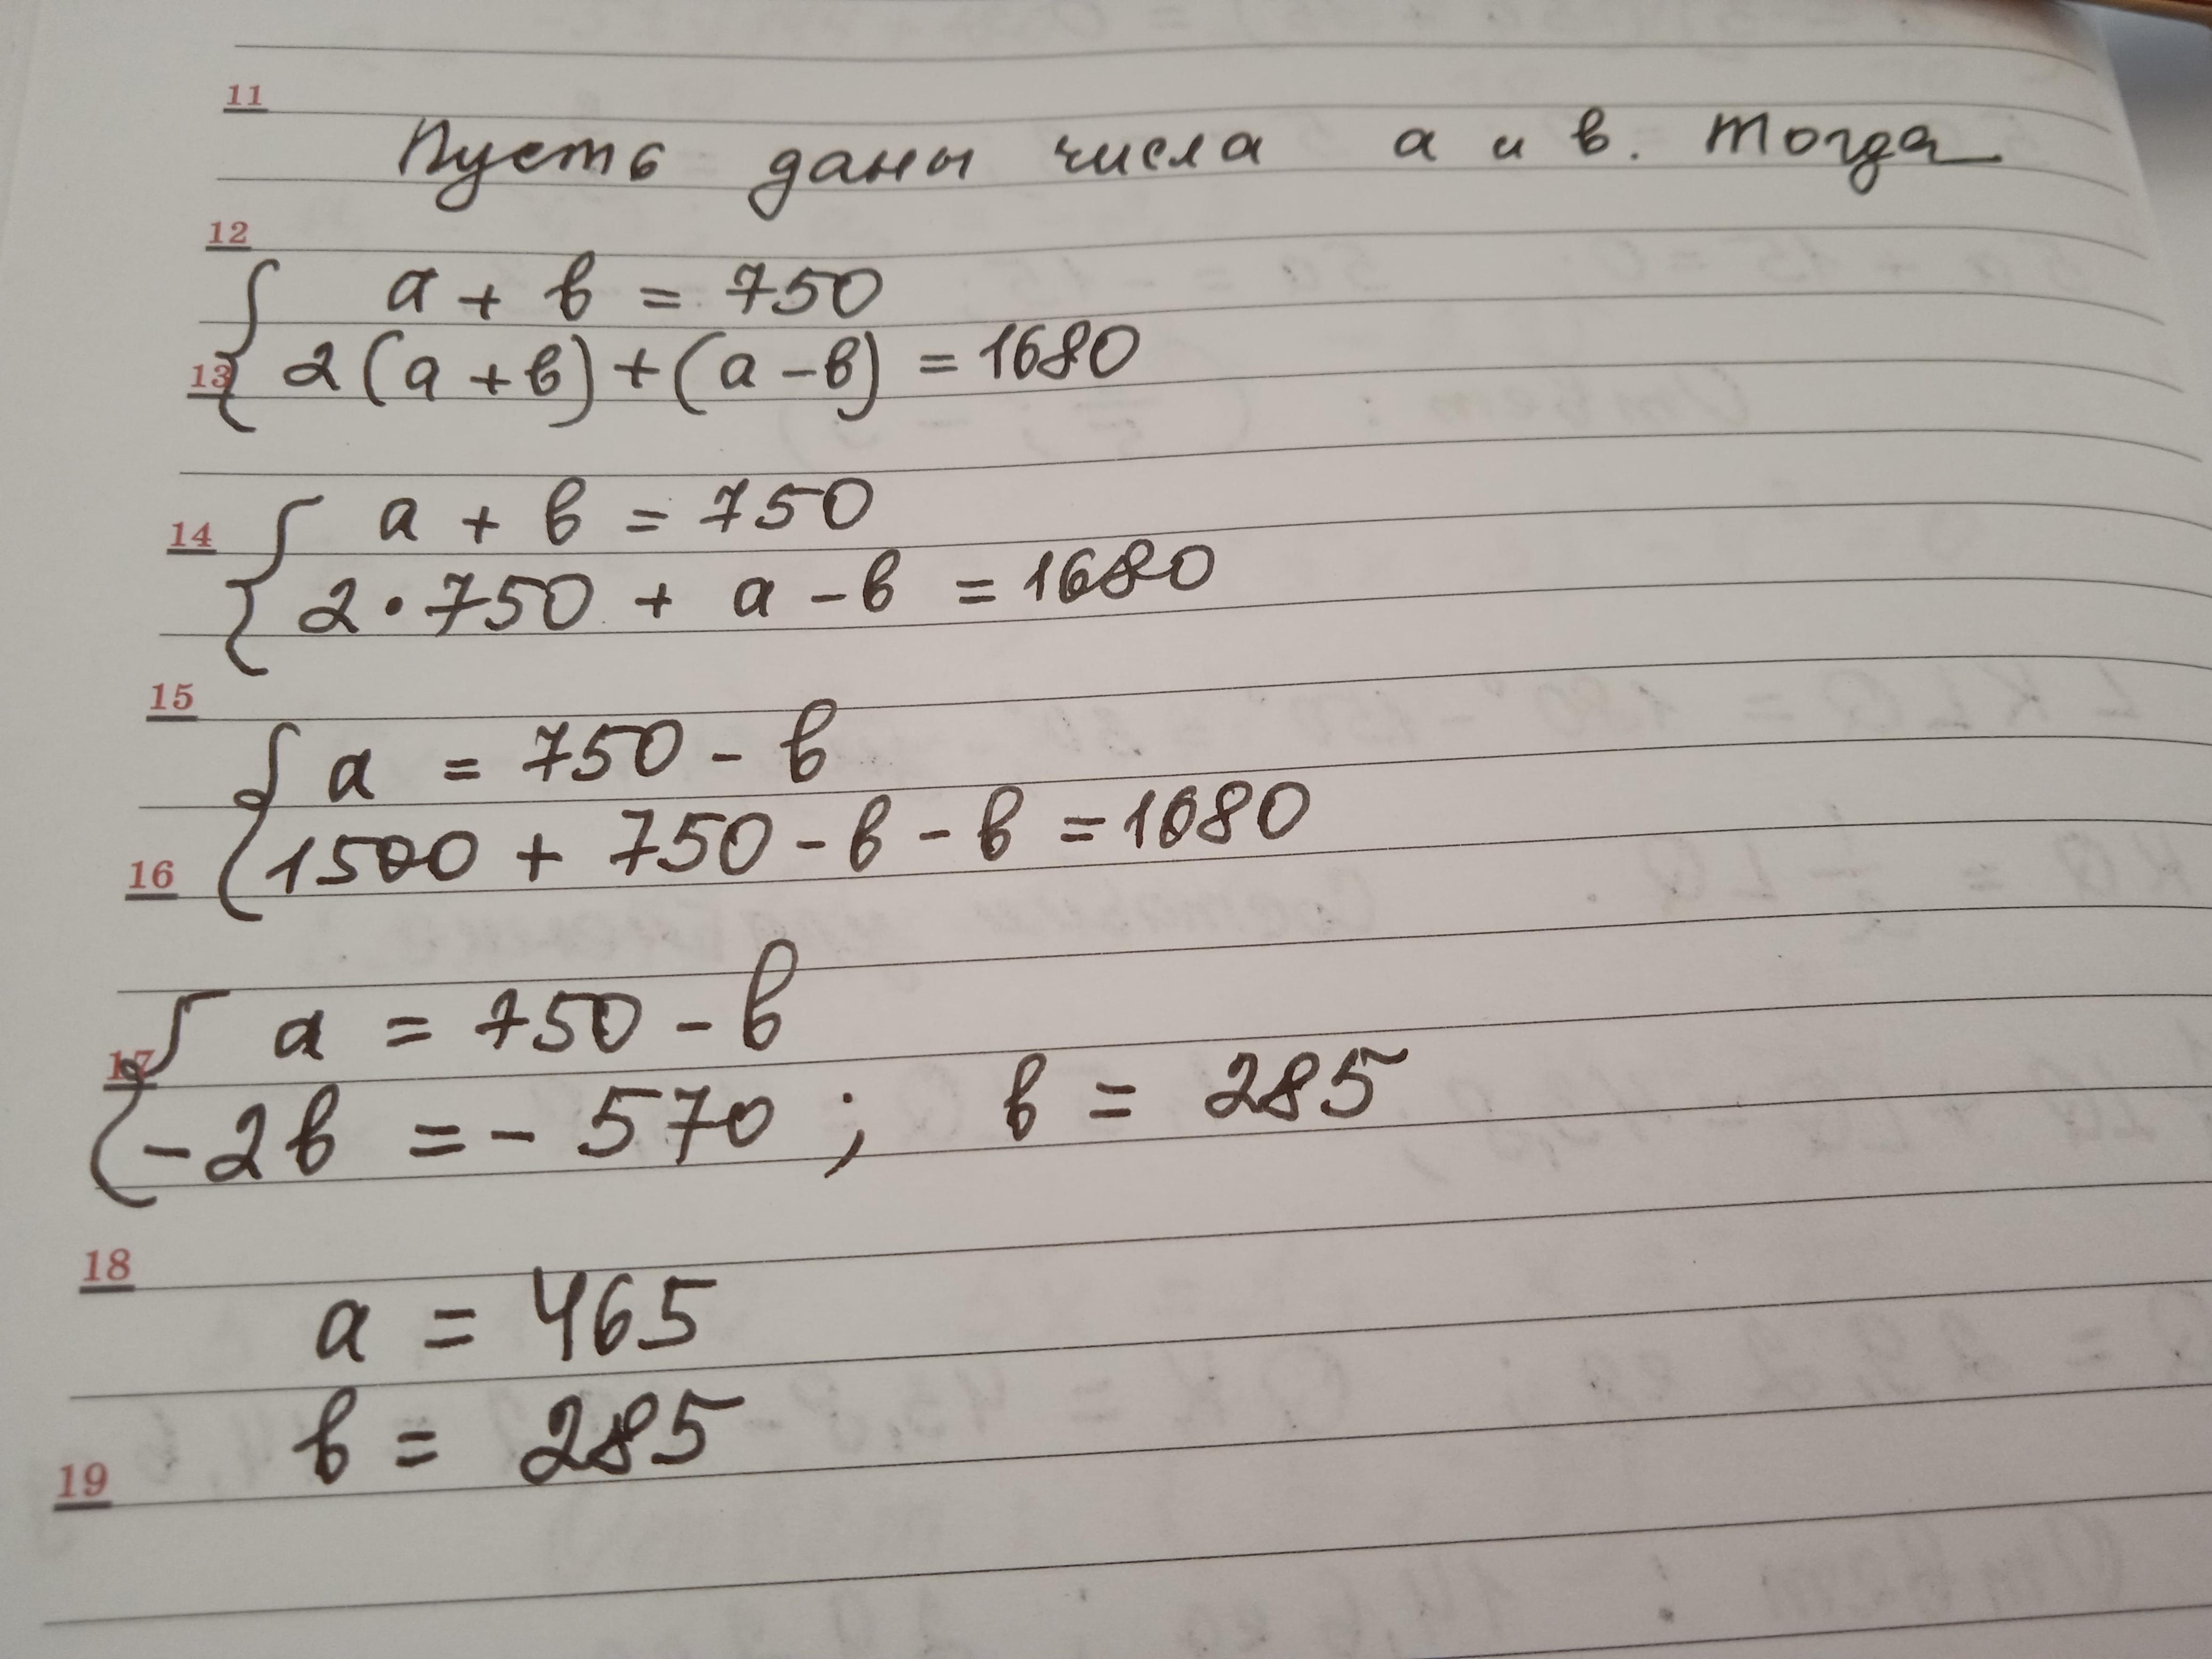 11
Пусть даны числа а и в. Тогда
12
а + в = 750
13 2(а + в) + (а - в) = 1680
14 а + в = 750
2 • 750 + а - в = 1680
15
а = 750 - в
16 1500 + 750 - в - в = 1680
17 а = 750 - в
-2в = - 570 ; в = 285
18
а = 465
в = 285
19